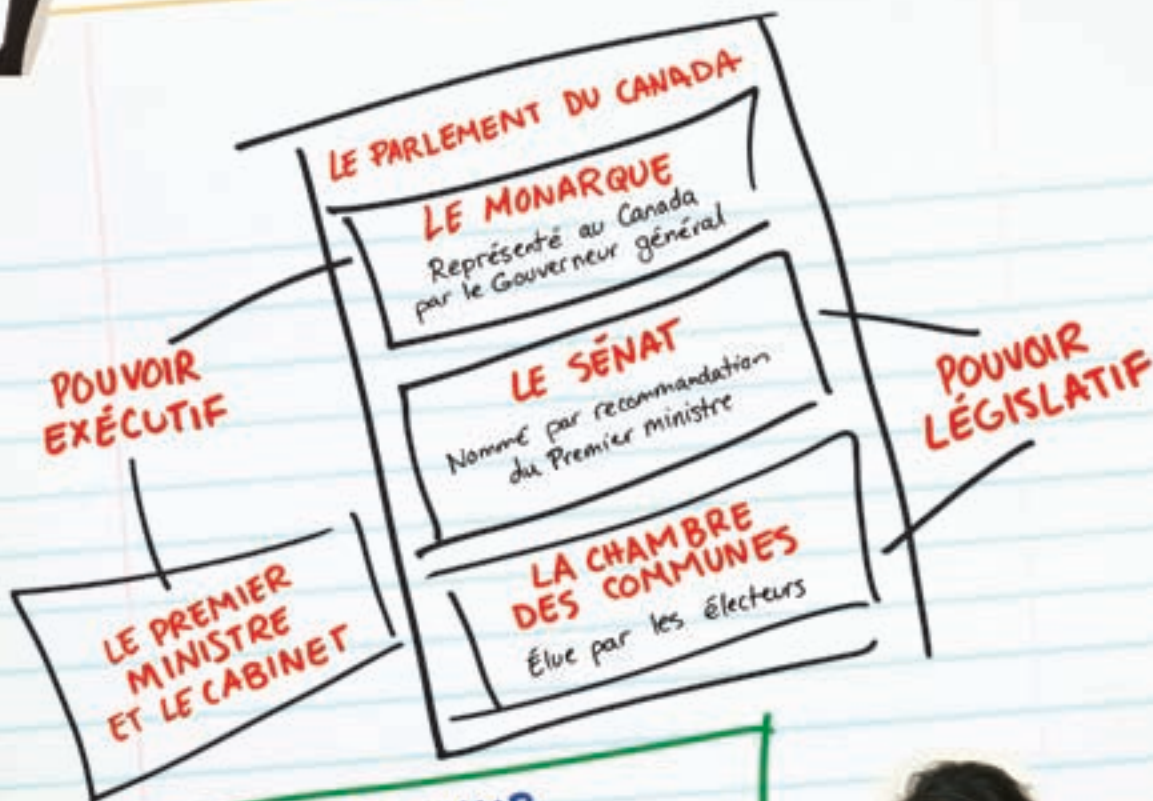 LE PARLEMENT DU CANADA
LE MONARQUE
Représenté au Canada
par le Gouverneur général
LE SÉNAT
Nommé par recommandation
du Premier ministre
LA CHAMBRE
DES COMMUNES
Élue par les électeurs
POUVOIR
EXÉCUTIF
LE PREMIER
MINISTRE
ET LE CABINET
POUVOIR
LÉGISLATIF